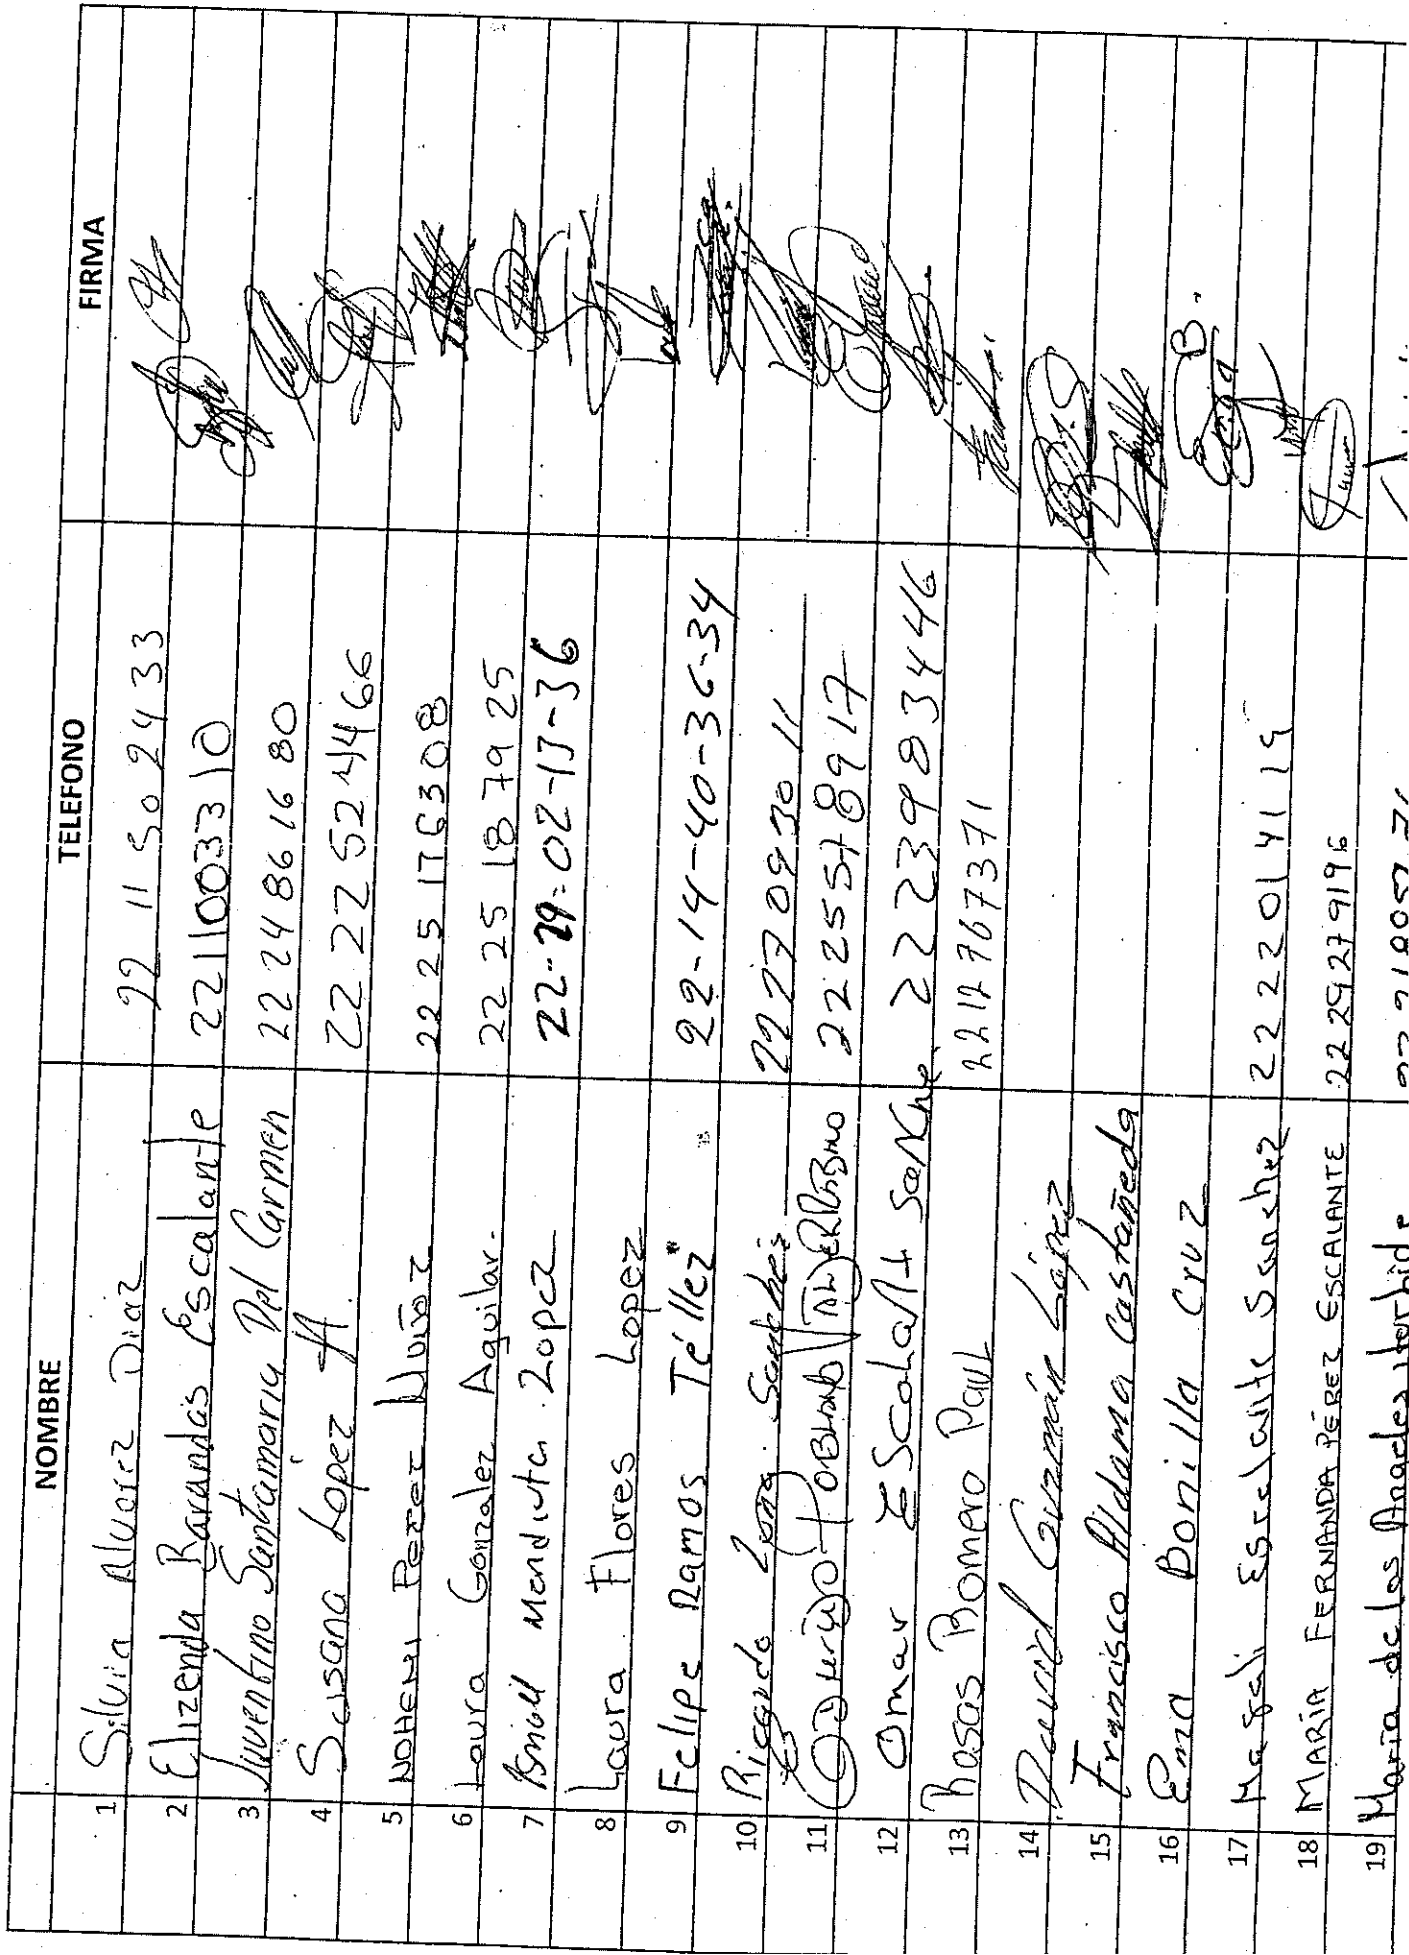 NOMBRE TELEFONO FIRMA
1 Silvia Alvarez Diaz 22 11 50 24 33
2 Elizenda Barandas Escalante 2211003310
3 Juventino Santamaria Del Carmen 22 24 86 16 80
4 Susana López A. 22 22 52 44 66
5 NOHEMI Perez Nuñoz 22 25 176308
6 Laura Gonzalez Aguilar. 22 25 18 79 25
7 Mendieta Lopez 22-29-02-13-36
8 Laura Flores Lopez
9 Felipe Ramos Téllez 22-14-40-36-34
10 Ricardo Sanchés 22 27 09 30 11
11 2225578917
12 Omar EScalant 2223983446
13 Rosas Romero Paul 2212767371
14 David Guzmán López
15 Francisco Aldama Castañeda
16 Ema Bonilla Cruz Ema B.
17 Magali Escalante Sanchez 22 22 01 41 19
18 MARÍA FERNANDA PÉREZ ESCALANTE 22 29 27 9196
19 María de los Angeles Iturbide